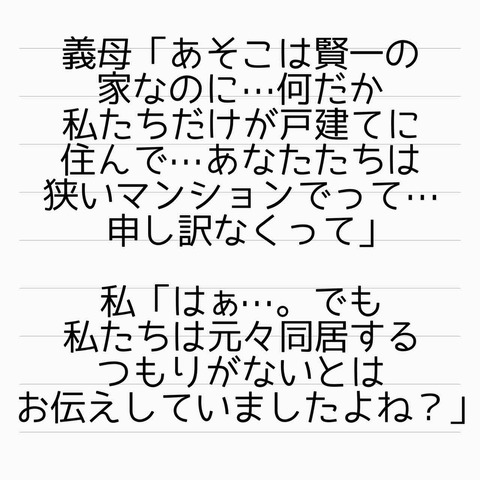 義母「あそこは賢一の
家なのに…何だか
私たちだけが戸建てに
住んで…あなたたちは
狭いマンションでって…
申し訳なくって」
私「はぁ…。でも
私たちは元々同居する
つもりがないとは
お伝えしていましたよね？」